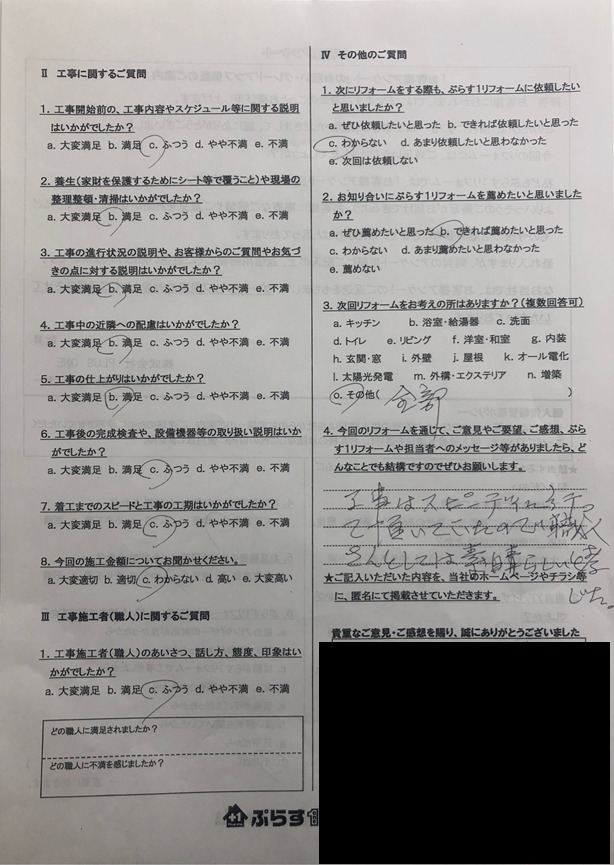 Ⅱ 工事に関するご質問
1. 工事開始前の、工事内容やスケジュール等に関する説明
はいかがでしたか？
a. 大変満足 b. 満足 c. ふつう d. やや不満 e. 不満
2. 養生(家財を保護するためにシート等で覆うこと)や現場の
整理整頓・清掃はいかがでしたか？
a. 大変満足 b. 満足 c. ふつう d. やや不満 e. 不満
3. 工事の進行状況の説明や、お客様からのご質問やお気づ
きの点に対する説明はいかがでしたか？
a. 大変満足 b. 満足 c. ふつう d. やや不満 e. 不満
4. 工事中の近隣への配慮はいかがでしたか？
a. 大変満足 b. 満足 c. ふつう d. やや不満 e. 不満
5. 工事の仕上がりはいかがでしたか？
a. 大変満足 b. 満足 c. ふつう d. やや不満 e. 不満
6. 工事後の完成検査や、設備機器等の取り扱い説明はいか
がでしたか？
a. 大変満足 b. 満足 c. ふつう d. やや不満 e. 不満
7. 着工までのスピードと工事の工期はいかがでしたか？
a. 大変満足 b. 満足 c. ふつう d. やや不満 e. 不満
8. 今回の施工金額についてお聞かせください。
a. 大変適切 b. 適切 c. わからない d. 高い e. 大変高い
Ⅲ 工事施工者(職人)に関するご質問
1. 工事施工者(職人)のあいさつ、話し方、態度、印象はい
かがでしたか？
a. 大変満足 b. 満足 c. ふつう d. やや不満 e. 不満
どの職人に満足されましたか？
どの職人に不満を感じましたか？
+1 ぷらす1
Ⅳ その他のご質問
1. 次にリフォームをする際も、ぷらす1リフォームに依頼したい
と思いましたか？
a. ぜひ依頼したいと思った b. できれば依頼したいと思った
c. わからない d. あまり依頼したいと思わなかった
e. 次回は依頼しない
2. お知り合いにぷらす1リフォームを薦めたいと思いました
か？
a. ぜひ薦めたいと思った b. できれば薦めたいと思った
c. わからない d. あまり薦めたいと思わなかった
e. 薦めない
3. 次回リフォームをお考えの所はありますか？(複数回答可)
a. キッチン b. 浴室・給湯器 c. 洗面
d. トイレ e. リビング f. 洋室・和室 g. 内装
h. 玄関・窓 i. 外壁 j. 屋根 k. オール電化
l. 太陽光発電 m. 外構・エクステリア n. 増築
o. その他( 全部 )
4. 今回のリフォームを通じて、ご意見やご要望、ご感想、ぷら
す1リフォームや担当者へのメッセージ等がありましたら、ど
んなことでも結構ですのでぜひお願いします。
工事はスピーディに
ていたので職人
さんとしては素晴らしいと
★ご記入いただいた内容を、当社のホームページやチラシ等
に、匿名にて掲載させていただきます。
貴重なご意見・ご感想を賜り、誠にありがとうございました